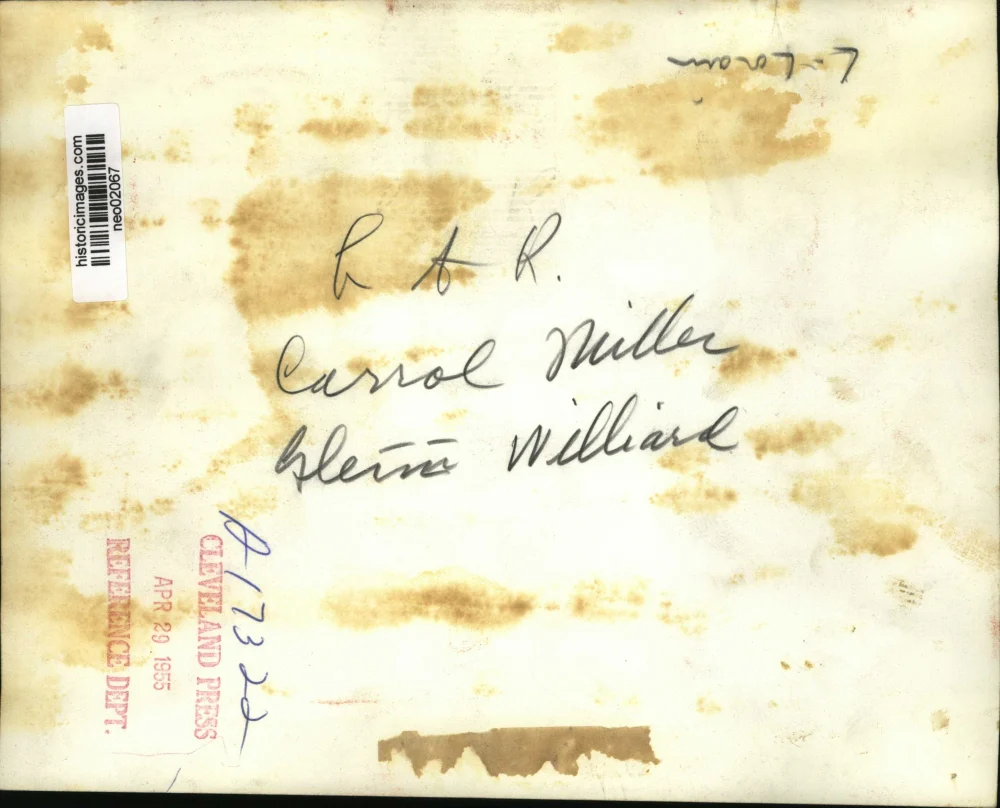 L to R.
Carrol Miller
Glenn Williard
L-Lorain
historicimages.com
neo02067
A17322
CLEVELAND PRESS
APR 29 1955
REFERENCE DEPT.